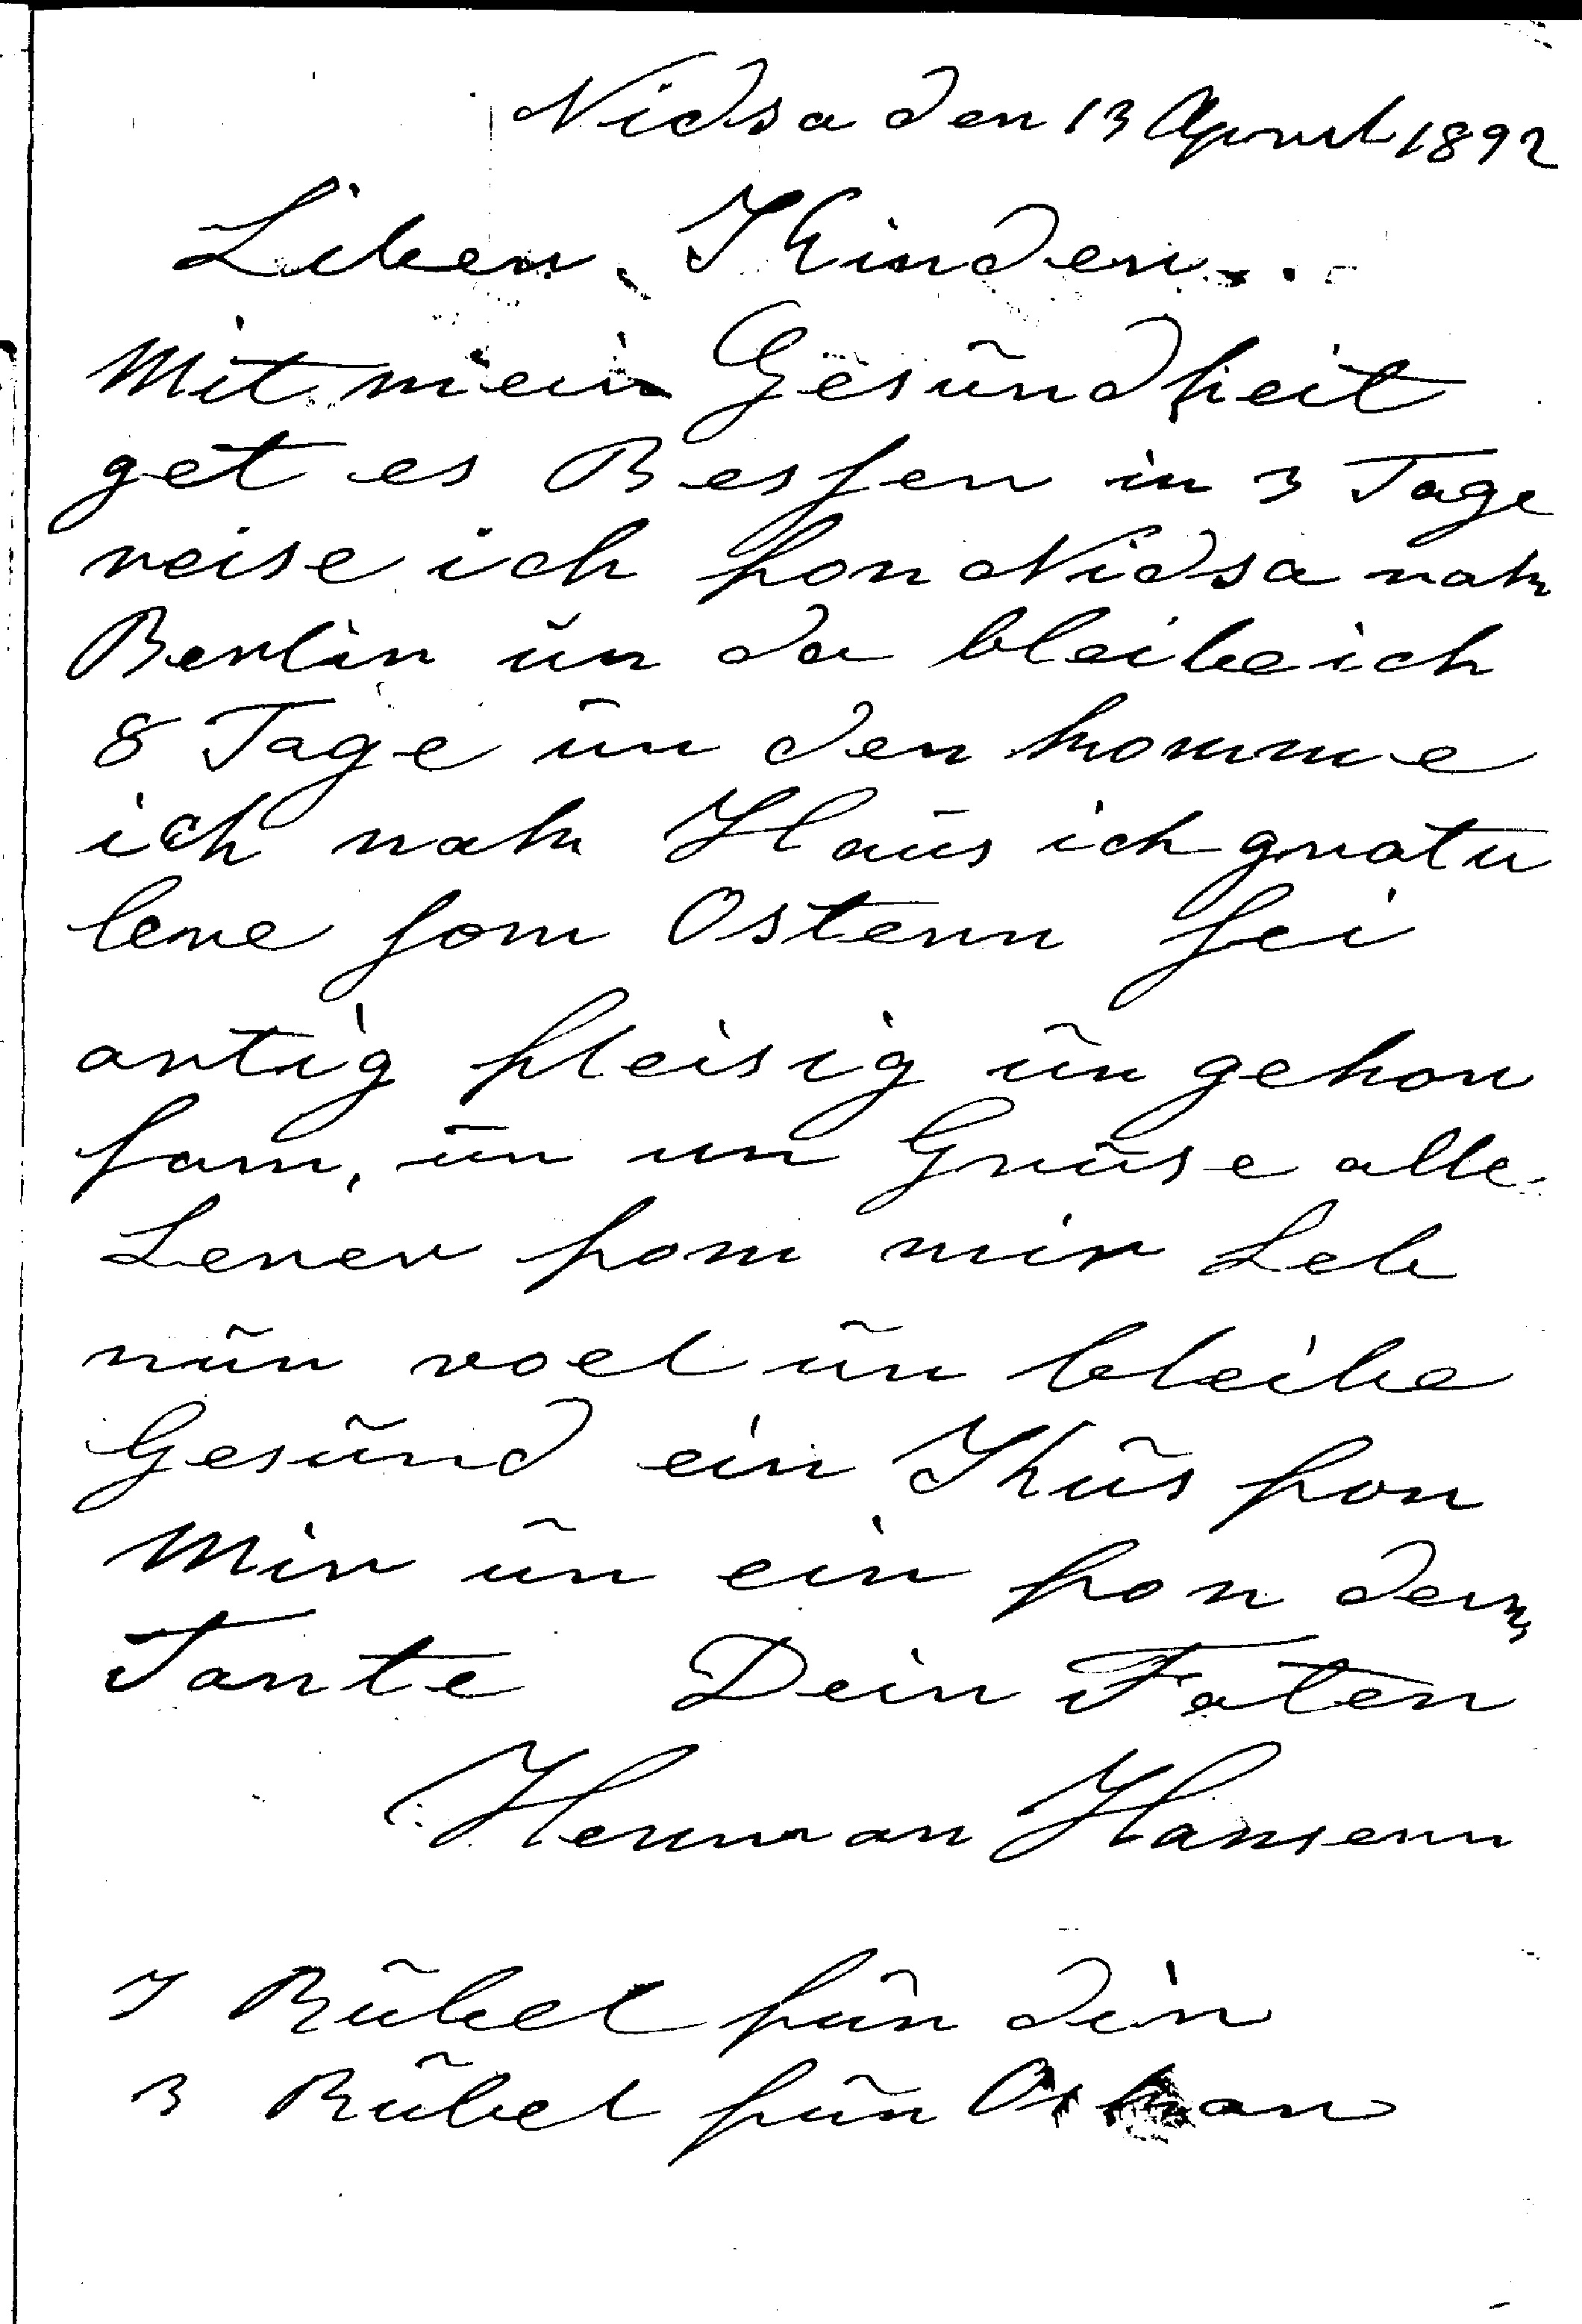 Nidsa den 13 April 1892
Liber Kinder.
Mit mein Gesundheit
get es Besser in 3 Tage
reise ich fon Nidsa nah
Berlin un da bleibe ich
8 Tage un den komme
ich nah Haus ich gratu
lere som Ostern sei
artig fleisig un gehor
sam, un un Gruse alle
Lerer fom mir Leb
nun woel un bleibe
Gesund ein Khus fon
Mir un ein fon dem
Tante Dein Fater
Herman Hansenn
7 Rubel fur dir
3 Rubel fur Oskar